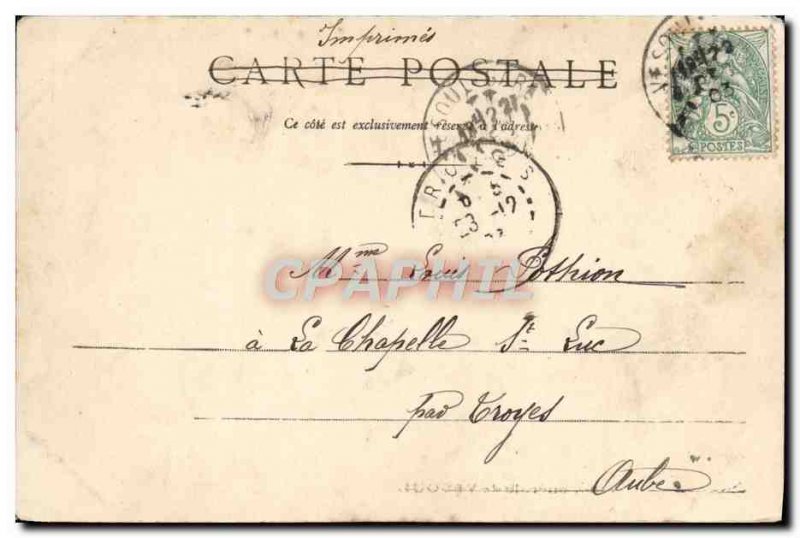 Imprimés
CARTE POSTALE
Ce côté est exclusivement réservé à l'adresse
5c
POSTES
VESOUL
TROYES
Mme Louis Pothion
CPAPHIL
à La Chapelle St Luc
par Troyes
Aube